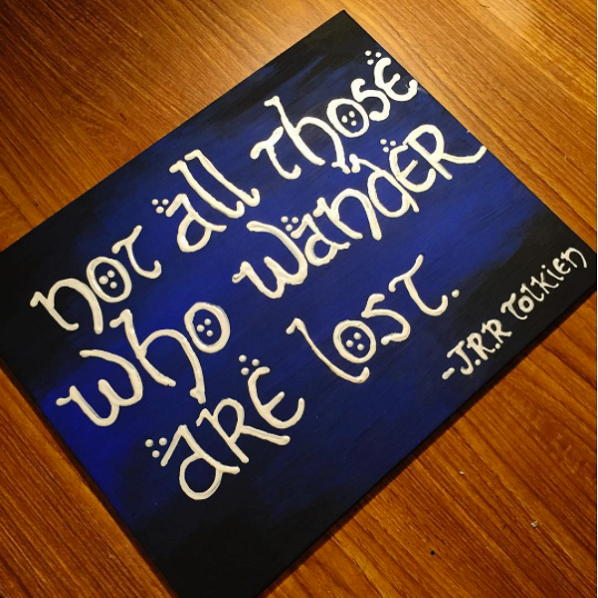 not all those
who wander
are lost.
-J.R.R Tolkien